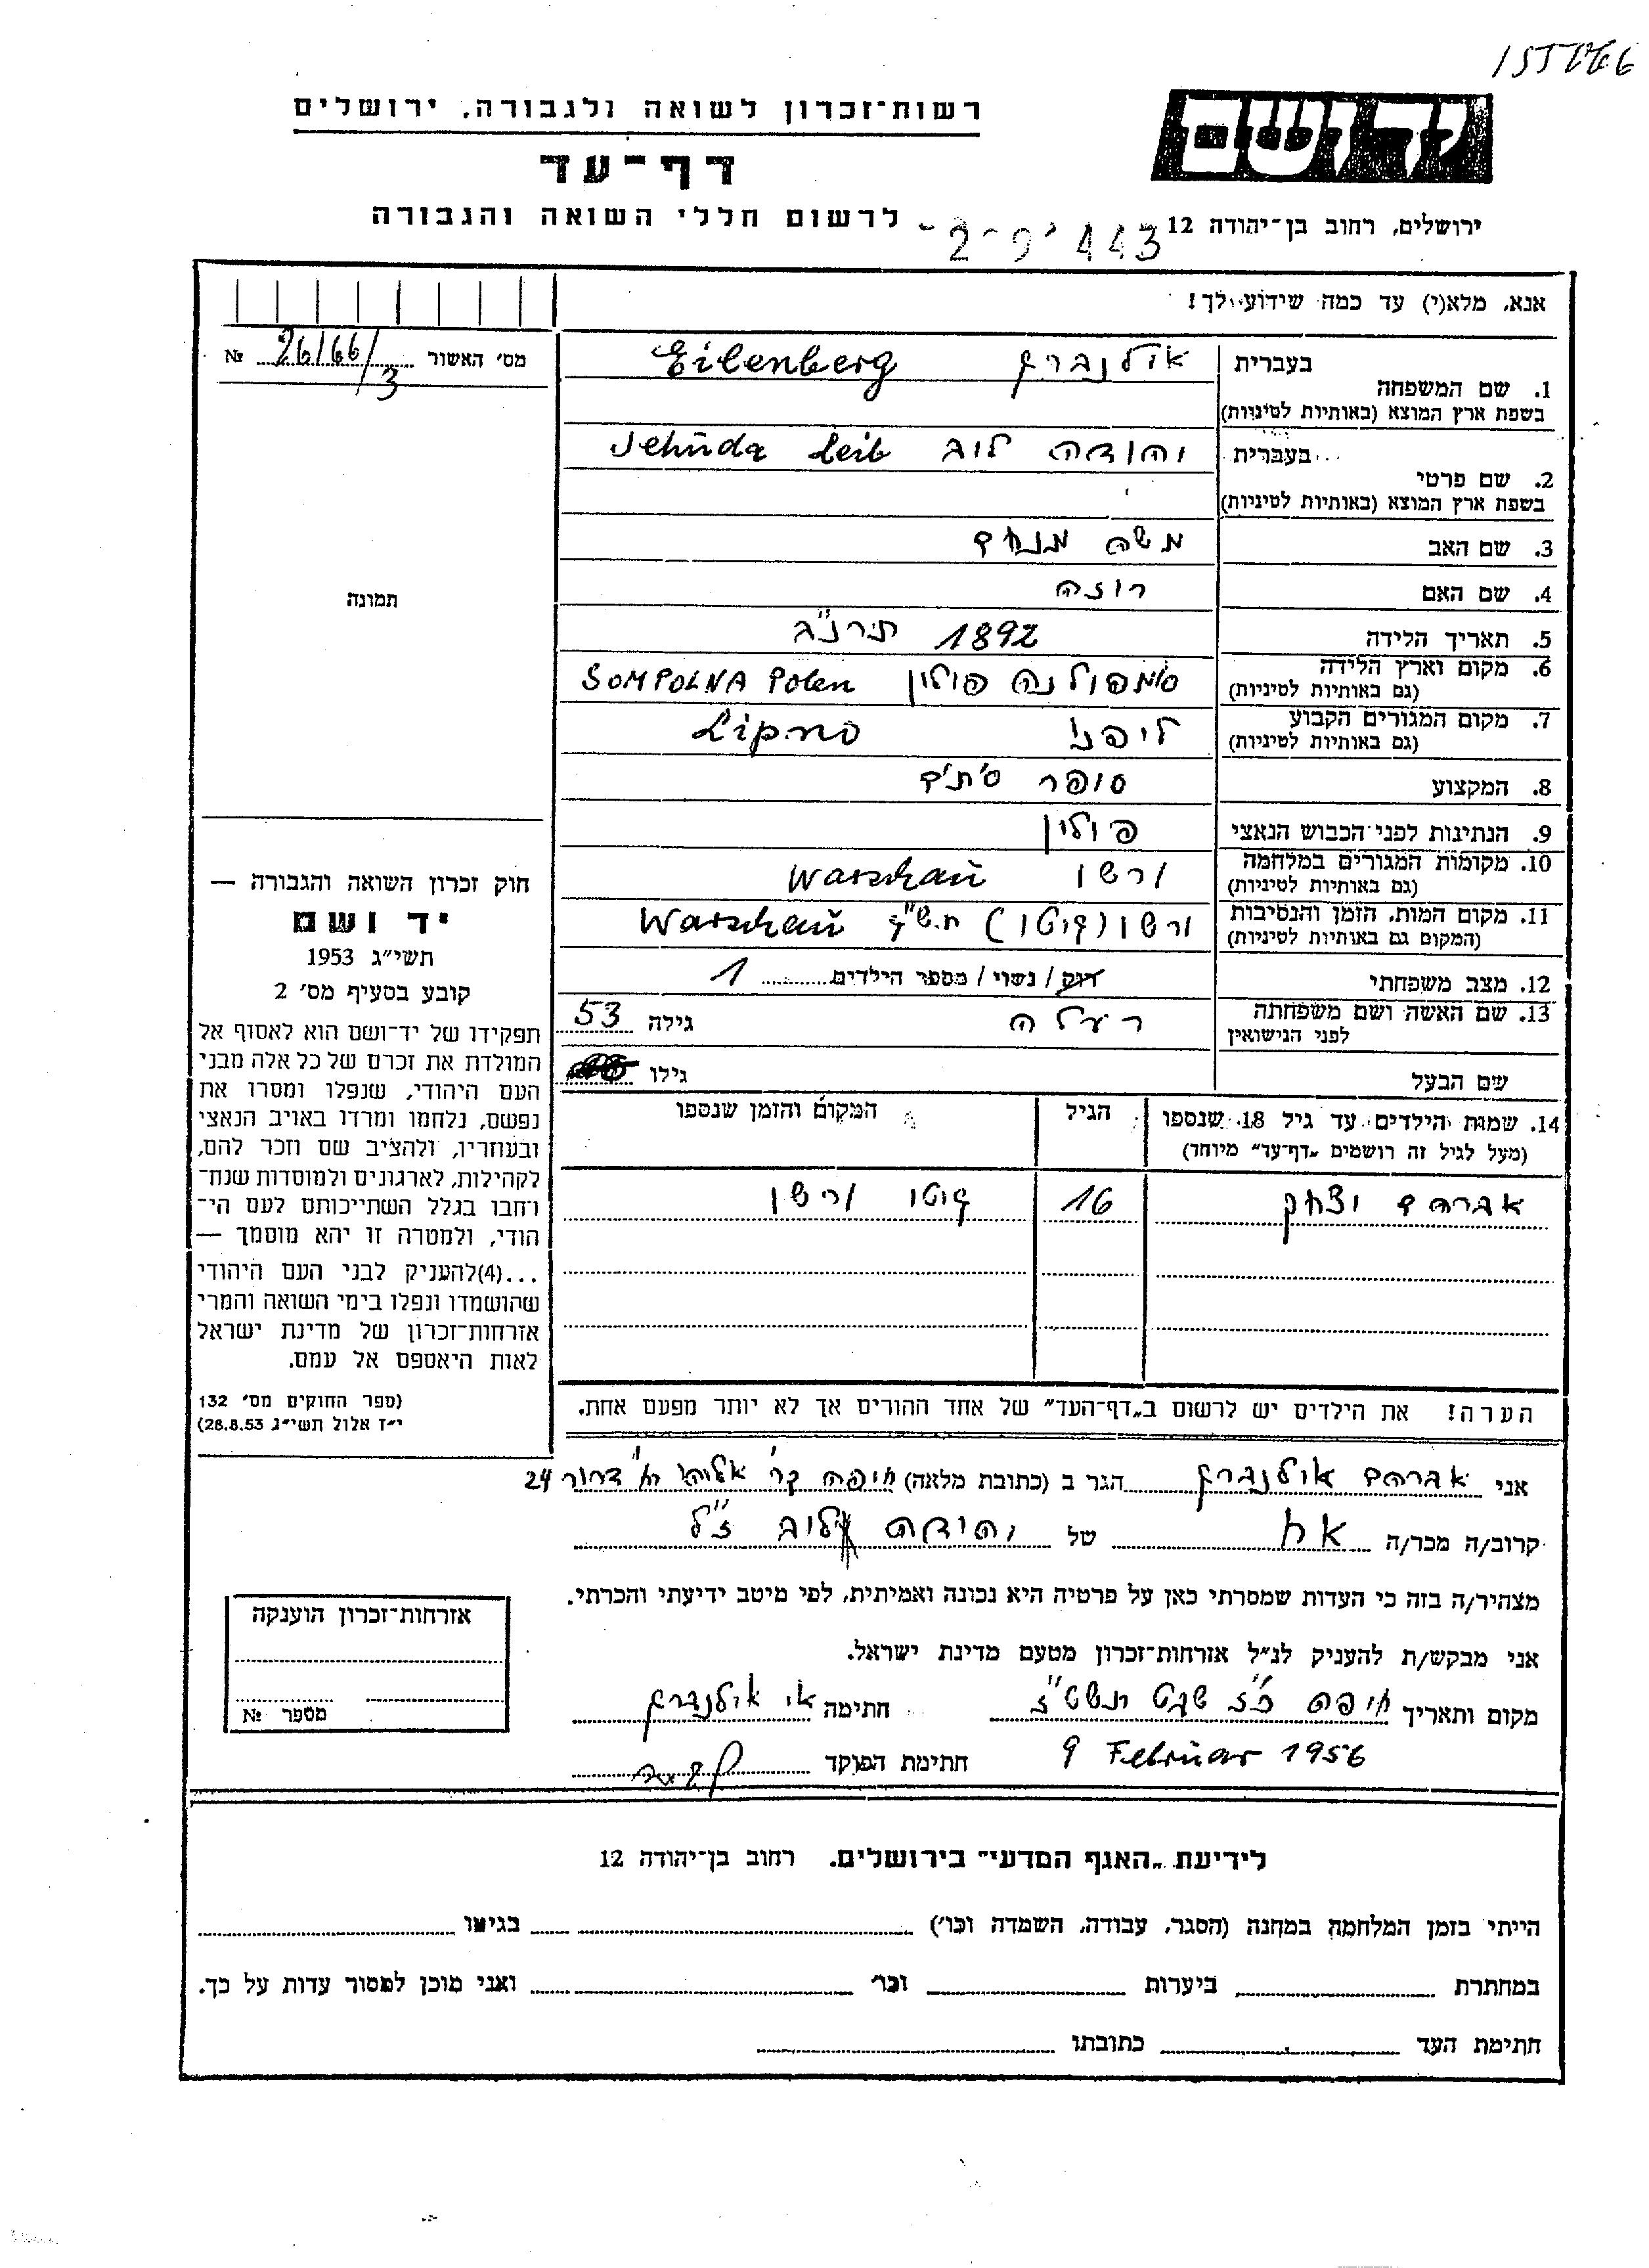 רשות־זכרון לשואה ולגבורה, ירושלים
דף־עד
לרשום חללי השואה והגבורה
ידושם
ירושלים, רחוב בן־יהודה 12
443
אנא, מלא(י) עד כמה שידוע לך!
מס׳ האשור 26/66/3 №
בעברית
1. שם המשפחה
בשפת ארץ המוצא (באותיות לטיניות)
אילנברג Eilenberg
בעברית
2. שם פרטי
בשפת ארץ המוצא (באותיות לטיניות)
יהודה ליב Jehuda Leib
3. שם האב משה מנחם
4. שם האם רוזה
5. תאריך הלידה 1892 תרנ"ב
6. מקום וארץ הלידה
(גם באותיות לטיניות)
סומפולנה פולין SOMPOLNA Polen
7. מקום המגורים הקבוע
(גם באותיות לטיניות)
ליפנו Lipno
8. המקצוע סופר ס'ת'ם
9. הנתינות לפני הכבוש הנאצי פולין
10. מקומות המגורים במלחמה
(גם באותיות לטיניות)
ורשו Warschau
11. מקום המות, הזמן והנסיבות
(המקום גם באותיות לטיניות)
ורשו (גיטו) Warschau
12. מצב משפחתי רוק / נשוי / מספר הילדים 1
13. שם האשה ושם משפחתה
לפני הנישואין
גילה 53
שם הבעל גילו
14. שמות הילדים עד גיל 18 שנספו
(מעל לגיל זה רושמים „דף־עד״ מיוחד)
הגיל
המקום והזמן שנספו
אברהם יצחק 16 גיטו ורשו
הערה! את הילדים יש לרשום ב„דף־העד״ של אחד ההורים אך לא יותר מפעם אחת.
תמונה
חוק זכרון השואה והגבורה —
יד ושם
תשי״ג 1953
קובע בסעיף מס׳ 2
תפקידו של יד־ושם הוא לאסוף אל
המולדת את זכרם של כל אלה מבני
העם היהודי, שנפלו ומסרו את
נפשם, נלחמו ומרדו באויב הנאצי
ובעוזריו, ולהציב שם וזכר להם,
לקהילות, לארגונים ולמוסדות שנח־
רחבו בגלל השתייכותם לעם הי־
הודי, ולמטרה זו יהא מוסמך —
...(4)להעניק לבני העם היהודי
שהושמדו ונפלו בימי השואה והמרי
אזרחות־זכרון של מדינת ישראל
לאות היאספם אל עמם.
(ספר החוקים מס׳ 132
י״ז אלול תשי״ג 28.8.53)
אני אברהם אילנברג הגר ב (כתובת מלאה) חיפה קר' אליהו רח' דרור 24
קרוב/ה מכר/ה אח של יהודה ליב ז"ל
מצהיר/ה בזה כי העדות שמסרתי כאן על פרטיה היא נכונה ואמיתית, לפי מיטב ידיעתי והכרתי.
אני מבקש/ת להעניק לנ״ל אזרחות־זכרון מטעם מדינת ישראל.
מקום ותאריך חיפה כ"ז שבט תשט"ז חתימה א' אילנברג
9 Februar 1956 חתימת הפוקד
אזרחות־זכרון הוענקה
מספר №
לידיעת „האגף המדעי״ בירושלים. רחוב בן־יהודה 12
הייתי בזמן המלחמה במחנה (הסגר, עבודה, השמדה וכו׳) בגיטו
במחתרת ביערות וכו׳ ואני מוכן למסור עדות על כך.
חתימת העד כתובתו